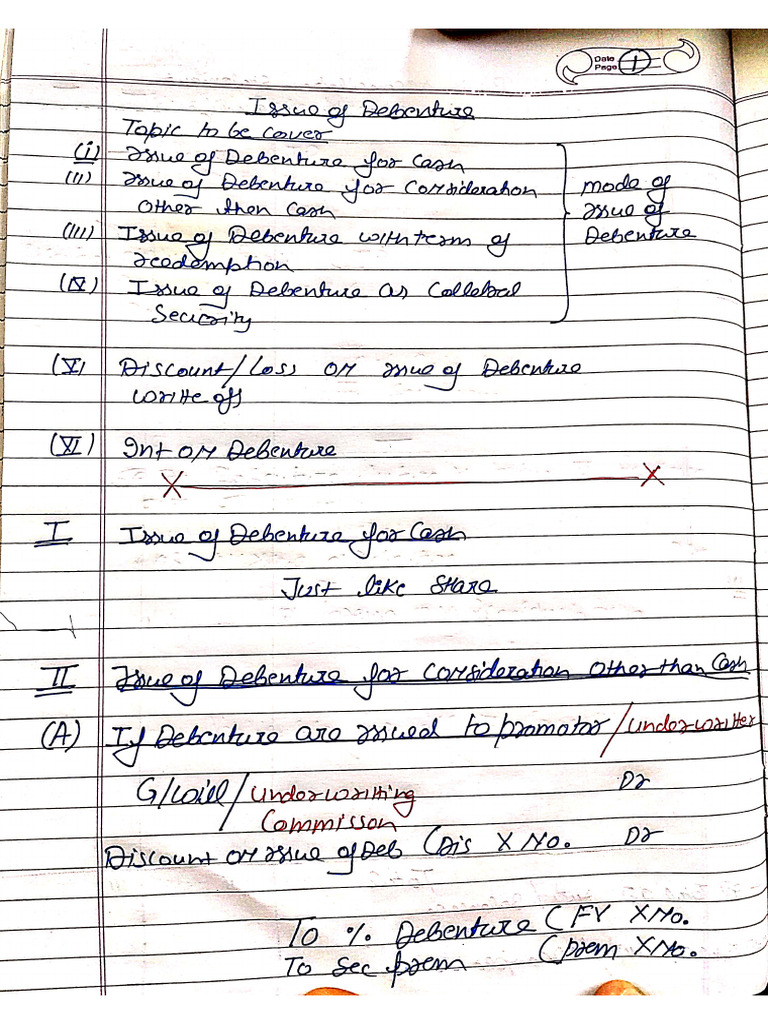 Date
Page 1
Issue of Debenture
Topic to be cover
(i) Issue of Debenture for Cash
(II) Issue of Debenture for Consideration
Other then Cash
(III) Issue of Debenture with term of
reedemption
(IV) Issue of Debenture as Collebral
Security
mode of
issue of
Debenture
(V) Discount/Loss on issue of Debenture
write off
(VI) Int on Debenture
X X
I Issue of Debenture for Cash
Just like Share
II Issue of Debenture for Consideration Other than Cash
(A) If Debenture are issued to promotor/underwriter
G/will/underwriting Dr
Commisson
Discount on issue of Deb (Dis X No. Dr
To % Debenture (FV X No.
To Sec prem (prem X No.